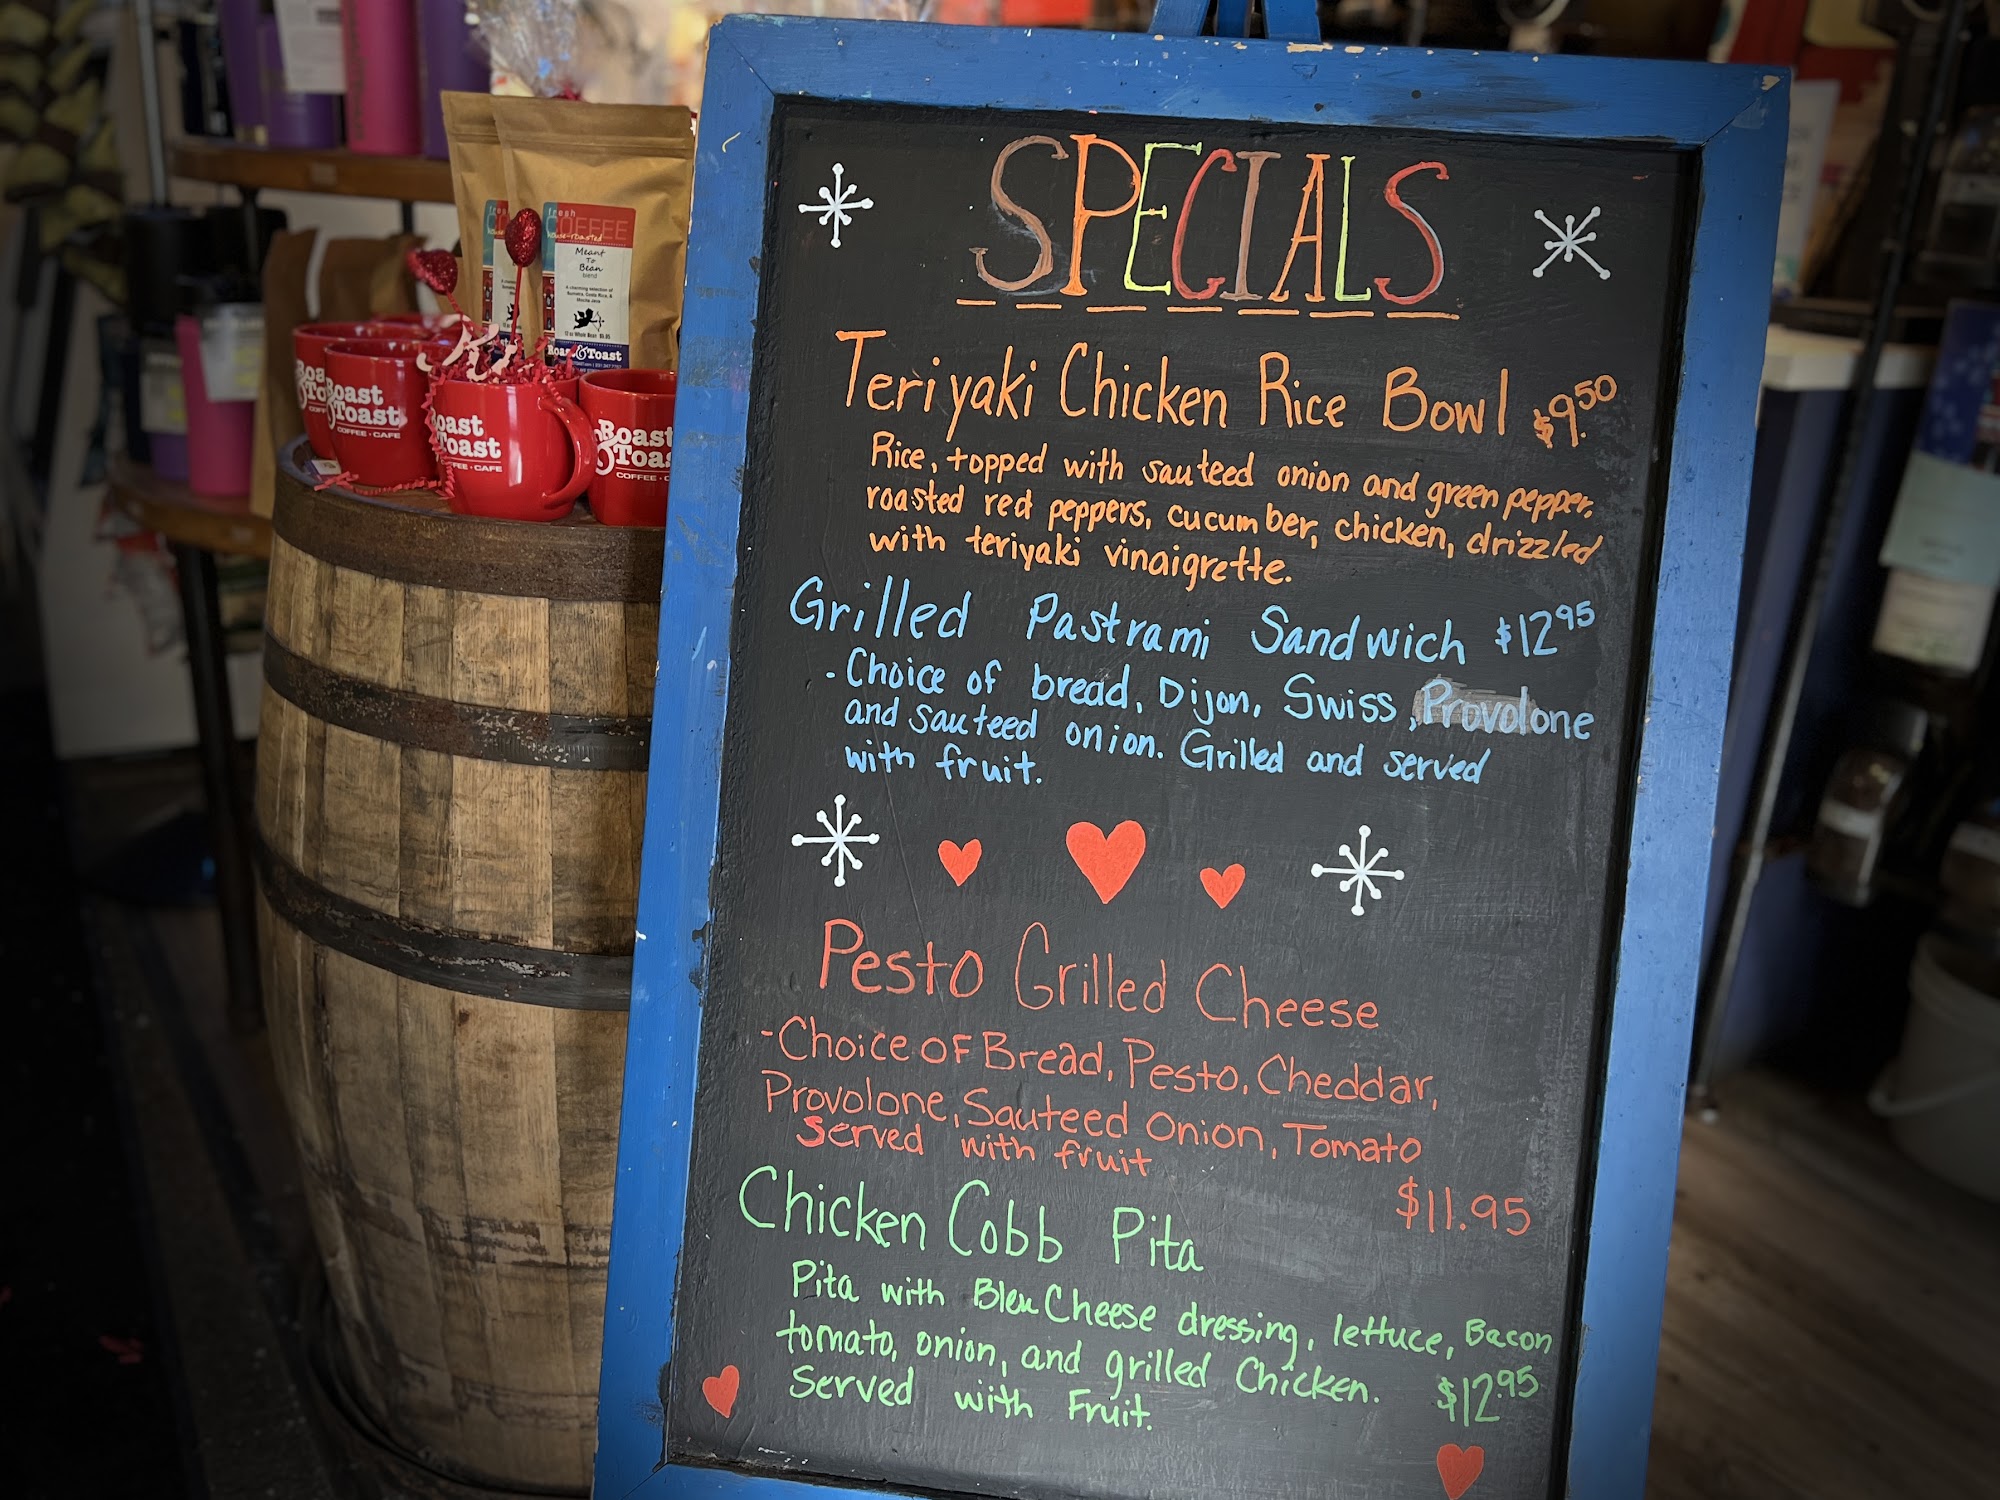 SPECIALS
Teriyaki Chicken Rice Bowl $9.50
Rice, topped with sauteed onion and green pepper,
roasted red peppers, cucumber, chicken, drizzled
with teriyaki vinaigrette.
Grilled Pastrami Sandwich $12.95
- Choice of bread, Dijon, Swiss, Provolone
and sauteed onion. Grilled and served
with fruit.
Pesto Grilled Cheese
- Choice of Bread, Pesto, Cheddar,
Provolone, Sauteed Onion, Tomato
served with fruit
$11.95
Chicken Cobb Pita
Pita with Bleu Cheese dressing, lettuce, Bacon
tomato, onion, and grilled Chicken. $12.95
Served with Fruit.
fresh
COFFEE
house-roasted
Meant
To
Bean
blend
A charming selection of
Sumatra, Costa Rica, &
Mocha Java
12 oz Whole Bean
Roast & Toast
Roast
& Toast
COFFEE • CAFE
Roast
Toast
CAFE
Roast
& Toast
COFFEE